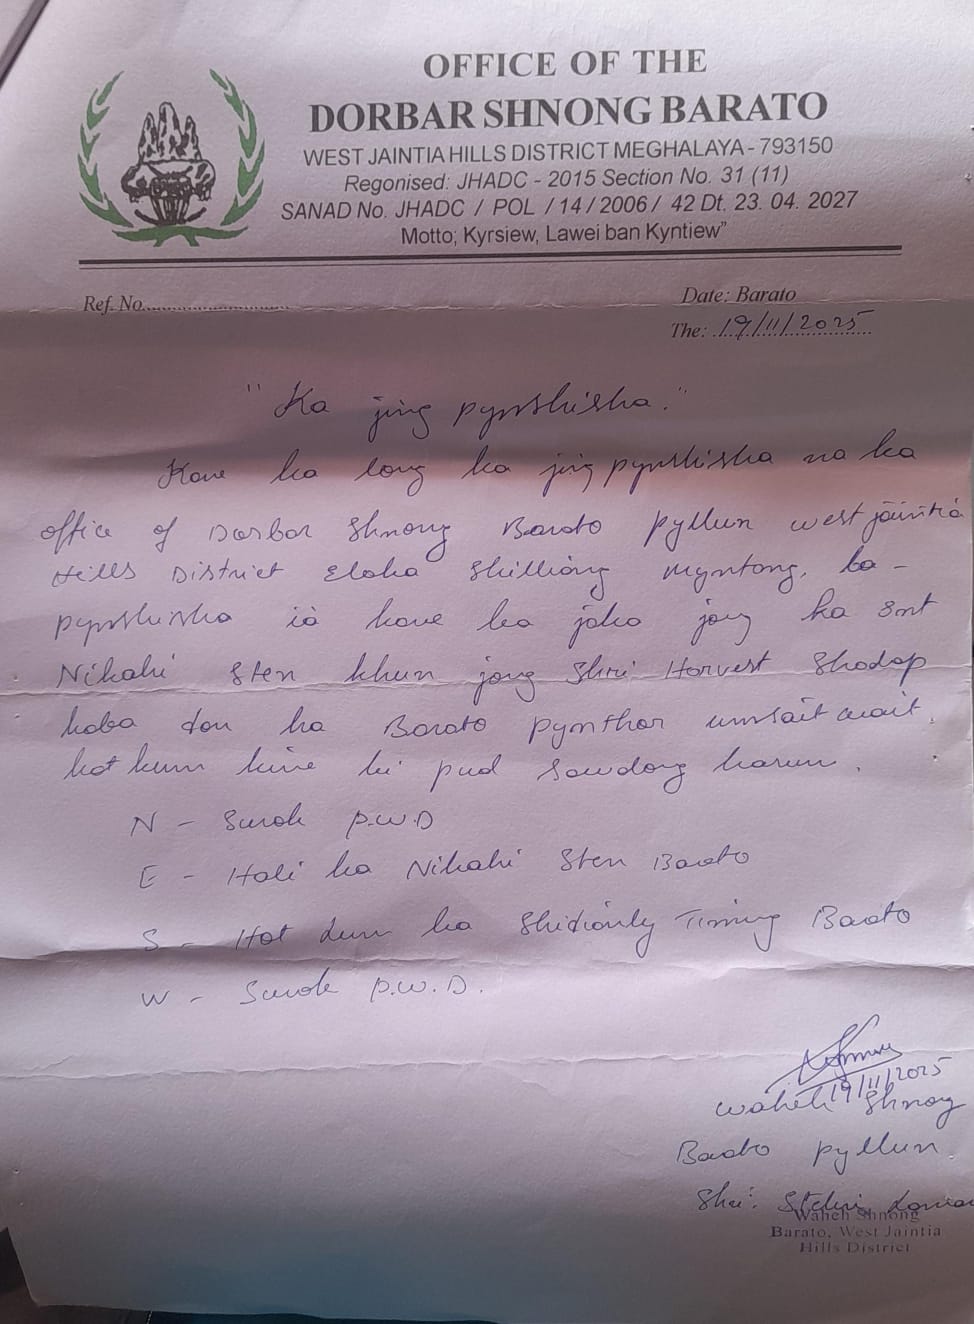 OFFICE OF THE
DORBAR SHNONG BARATO
WEST JAINTIA HILLS DISTRICT MEGHALAYA - 793150
Regonised: JHADC - 2015 Section No. 31 (11)
SANAD No. JHADC / POL / 14 / 2006 / 42 Dt. 23. 04. 2027
Motto; Kyrsiew, Lawei ban Kyntiew”
Ref. No.
Date: Barato
The: 19/11/2025
"Ka jing pynshisha."
Kane ka long ka jing pynshisha na ka
office of Dorbar Shnong Barato pyllun west jaintia
Hills District Elaka Shilliang myntang, ba -
pynshisha ia kane ka jaka jong ka Smt
Nikahi Sten khun jong Shri Harvest Shadap
kaba don ha Barato pynthor umsait wait.
kat kum kine ki pud sawdong harum.
N - Surok P.W.D
E - Hali ka Nikahi Sten Barato
S - Hat dum ka Timung Barato
W - Surok P.W.D.
19/11/2025
Waheh Shnong
Barato pyllun
Shri:
Waheh Shnong
Barato, West Jaintia
Hills District